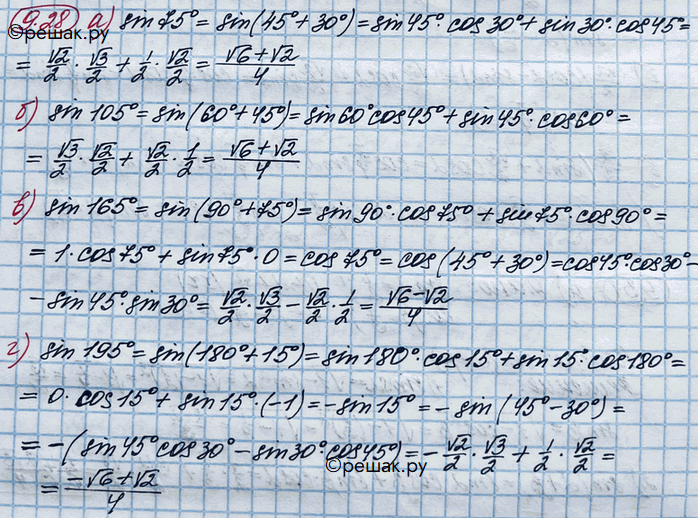 9.28 а) sin 75° = sin(45° + 30°) = sin 45° · cos 30° + sin 30° · cos 45° =
= √2/2 · √3/2 + 1/2 · √2/2 = (√6 + √2)/4
б) sin 105° = sin(60° + 45°) = sin 60° cos 45° + sin 45° · cos 60° =
= √3/2 · √2/2 + √2/2 · 1/2 = (√6 + √2)/4
в) sin 165° = sin(90° + 75°) = sin 90° · cos 75° + sin 75° · cos 90° =
= 1 · cos 75° + sin 75° · 0 = cos 75° = cos(45° + 30°) = cos 45° · cos 30° -
- sin 45° · sin 30° = √2/2 · √3/2 - √2/2 · 1/2 = (√6 - √2)/4
г) sin 195° = sin(180° + 15°) = sin 180° · cos 15° + sin 15° · cos 180° =
= 0 · cos 15° + sin 15° · (-1) = - sin 15° = - sin(45° - 30°) =
= -(sin 45° cos 30° - sin 30° · cos 45°) = - √2/2 · √3/2 + 1/2 · √2/2 =
= (-√6 + √2)/4
©решак.ру
©решак.ру